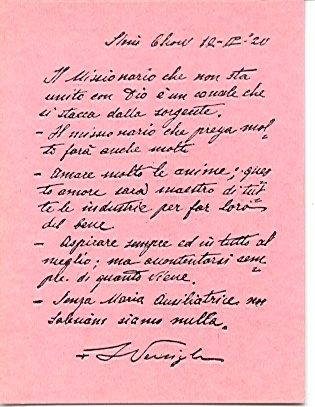 Shiu Chow 12-IX-20
Il Missionario che non sta
unito con Dio è un canale che
si stacca dalla sorgente.
- Il missionario che prega mol=
to farà anche molto
- Amare molto le anime; ques
to amore sarà maestro di tut=
te le industrie per far loro
del bene
- Aspirare sempre ed in tutto al
meglio; ma accontentarsi sem=
pre di quanto viene.
- Senza Maria Ausiliatrice noi
Salesiani siamo nulla.
+ L Versiglia